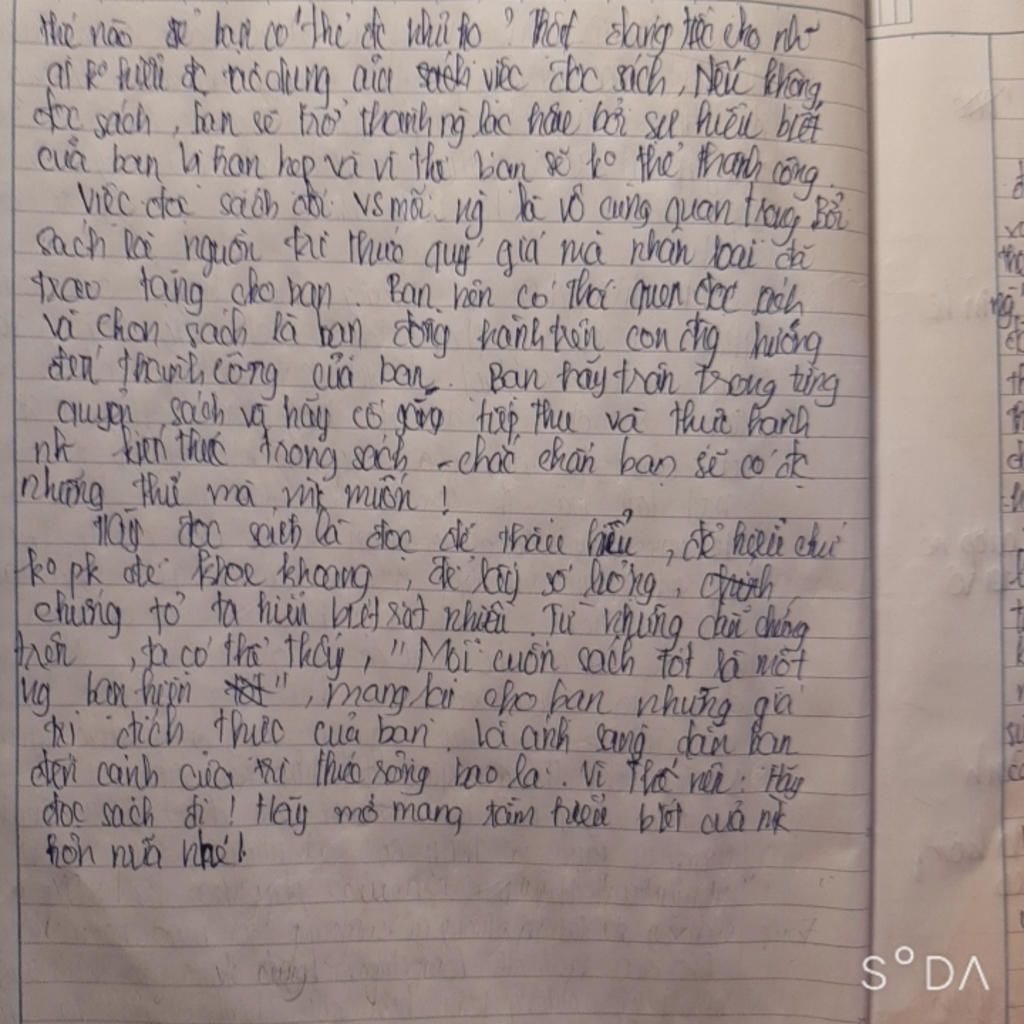 thế nào để bạn có thể đc như họ? Thật đáng tiếc cho nh~
ai ko hiểu đc nội dung của sách việc đọc sách, Nếu không
đọc sách, bạn sẽ trở thành ng lạc hậu bởi sự hiểu biết
của bạn bị hạn hẹp và vì thế bạn sẽ ko thể thành công.
Việc đọc sách đối vs mỗi ng là vô cùng quan trọng. Bởi
sách là nguồn tri thức quý giá mà nhân loại đã
trao tặng cho bạn. Bạn nên có thói quen đọc sách
và chọn sách là bạn đồng hành trên con đg hướng
đến thành công của bạn. Bạn hãy trân trọng từng
quyển sách và hãy cố gắng tiếp thu và thực hành
kiến thức trong sách - chắc chắn bạn sẽ có đc
những thứ mà mk muốn!
Hãy đọc sách là đọc để thấu hiểu, để hiểu chứ
ko pk để khoe khoang, để lấy số lượng,
chứng tỏ ta hiểu biết rất nhiều. Từ những dẫn chứng
trên, ta có thể thấy, "Mỗi cuốn sách tốt là một
ng bạn hiền", mang lại cho bạn những giá
trị đích thực của bạn. Là ánh sáng dẫn bạn
đến cánh cửa tri thức rộng bao la. Vì thế nên: Hãy
đọc sách đi! Hãy mở mang tầm hiểu biết của mk
hơn nữa nhé!
SODA